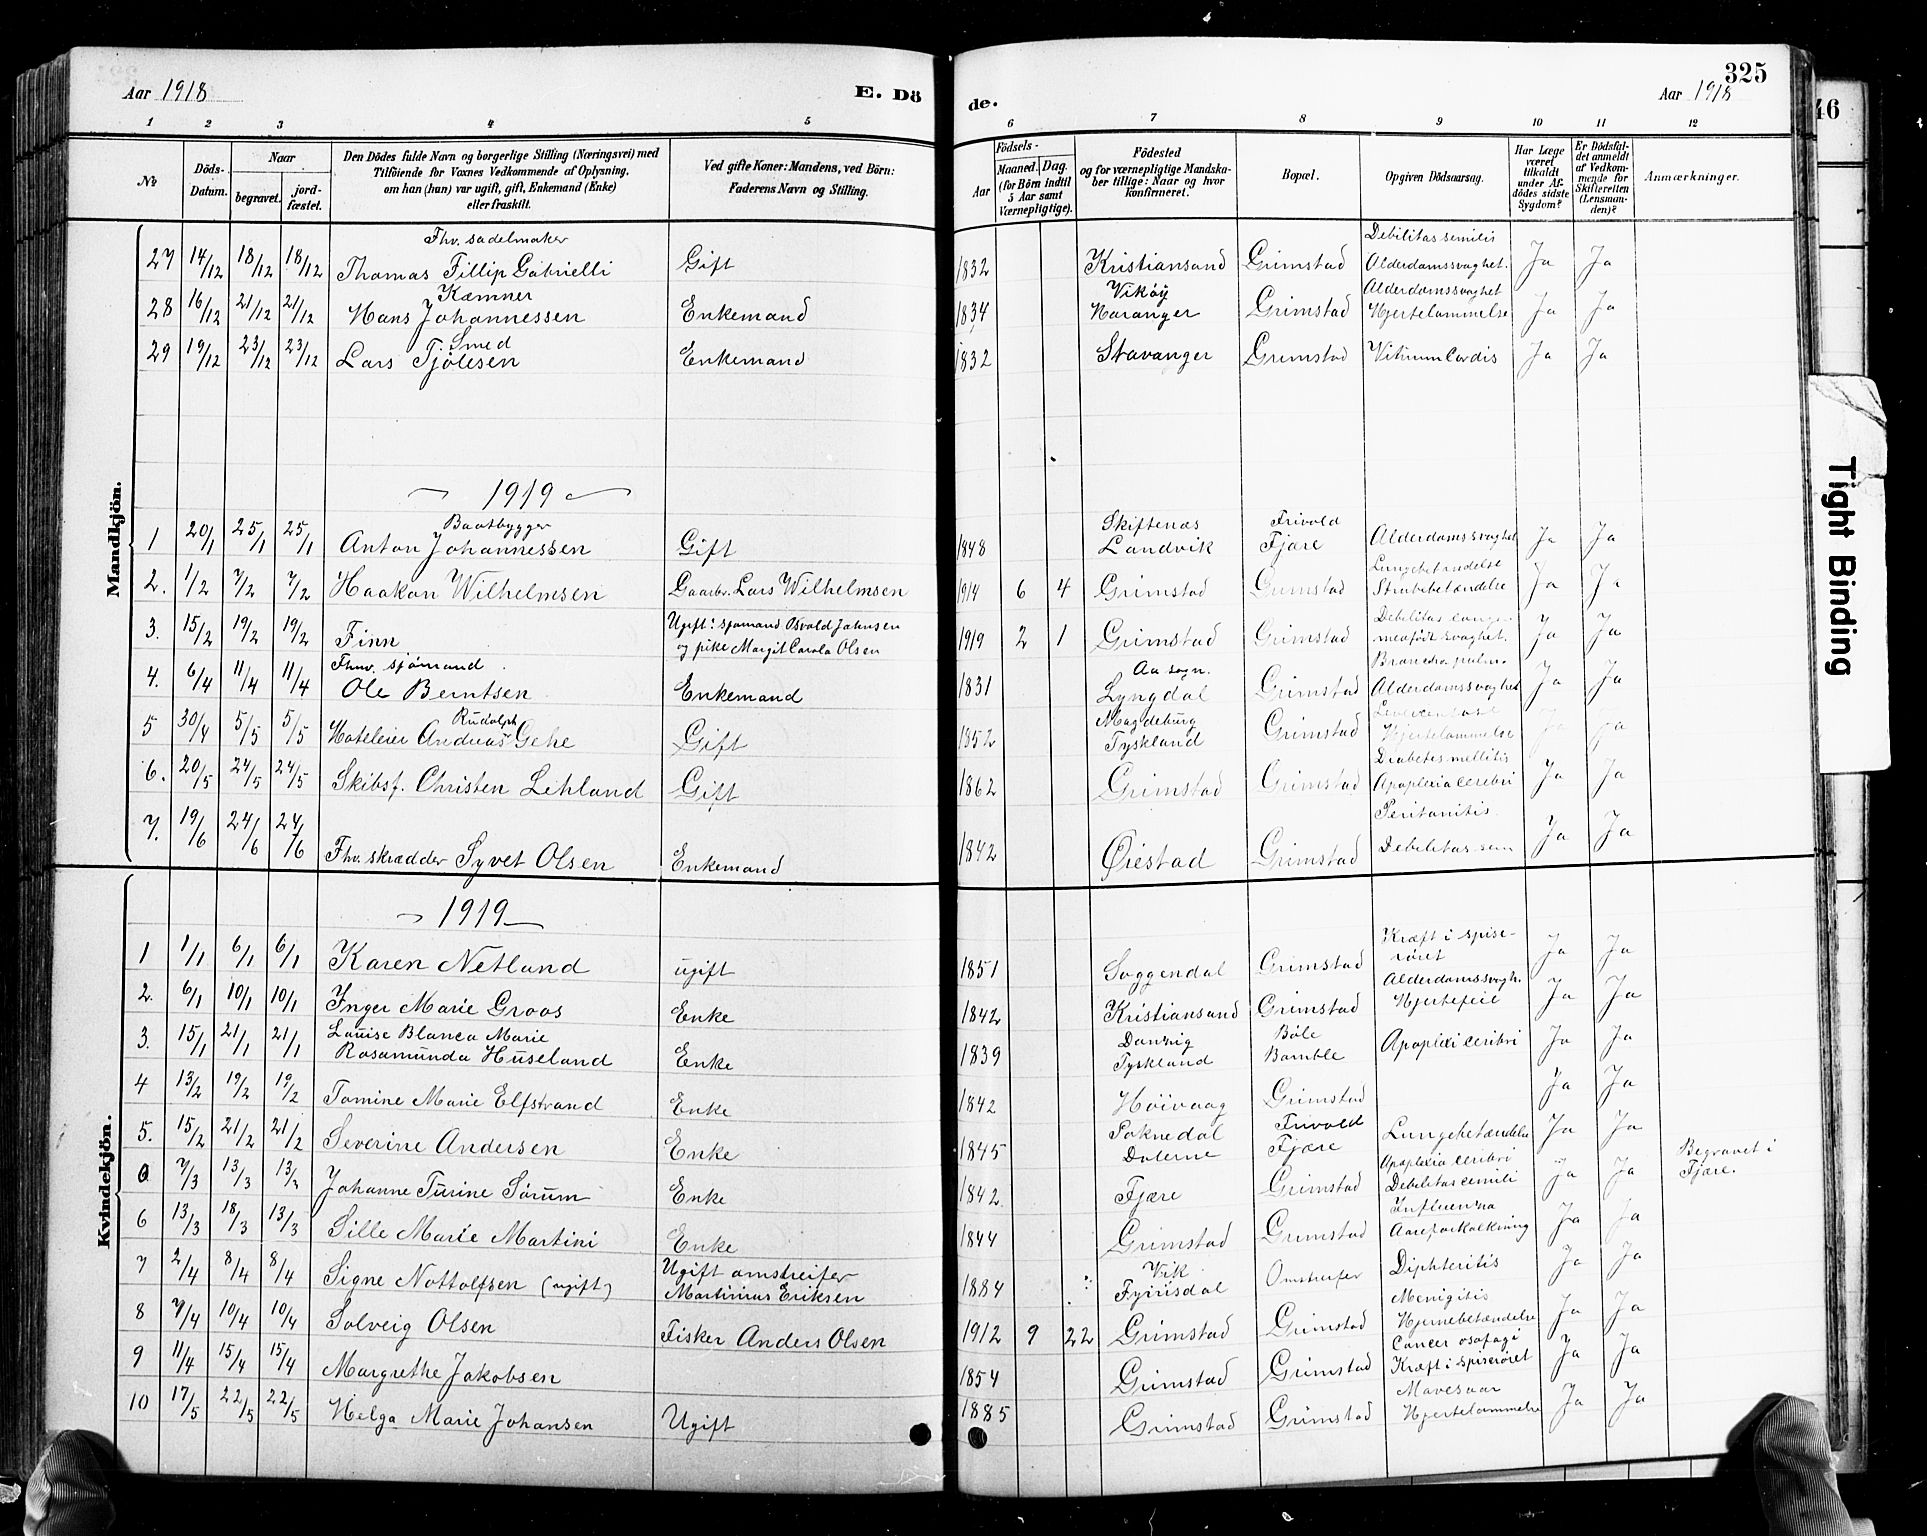 325
Aar 1918 E. Dö
de. Aar 1918
46
1 2 3 4 5 6 7 8 9 10 11 12
No
Döds-Datum.
Naar
begravet.
jord-fæstet.
Den Dödes fulde Navn og borgerlige Stilling (Næringsvei) med
Tilföiende for Voxnes Vedkommende af Oplysning,
om han (hun) var ugift, gift, Enkemand (Enke)
eller fraskilt.
Ved gifte Koner: Mandens, ved Börn:
Faderens Navn og Stilling.
Födsels-
Aar
Maaned. Dag.
(for Börn indtil
5 Aar samt
Værnepligtige).
Födested
og for værnepligtige Mandska-
ber tillige: Naar og hvor
konfirmeret.
Bopæl.
Opgiven Dödsaarsag.
Har Læge
været
tilkaldt
under Af-
dödes sidste
Sygdom?
Er Dödsfal-
det anmeldt
af Vedkom-
mende for
Skifteretten
(Lensman-
den)?
Anmærkninger.
Mandkjön.
27 14/12 18/12 18/12 Fhv. sadelmaker
Thomas Fillip Gabrielli Gift 1832 Kristiansand Grimstad Debilitas senilis
Alderdomssvaghet. Ja Ja
28 16/12 21/12 21/12 Kæmner
Hans Johannessen Enkemand 1834 Vikøy
Haranger Grimstad Alderdomssvaghet
Hjertelammelse Ja Ja
29 19/12 23/12 23/12 Smed
Lars Tjölesen Enkemand 1832 Stavanger Grimstad Vitium Cordis Ja Ja
1919
1 20/1 25/1 25/1 Baatbygger
Anton Johannessen Gift 1848 Skiftenæs
Landvik Frivold
Fjære Alderdomssvaghet Ja Ja
2. 1/2 7/2 7/2 Haakon Wilhelmsen Gaarbr. Lars Wilhelmsen 1914 6 4 Grimstad Grimstad Lungebetendelse
Strubebetændelse Ja Ja
3. 15/2 19/2 19/2 Finn Ugift: sjømand Osvald Jahnsen
og pike Margit Carola Olsen 1919 2 1 Grimstad Grimstad Debilitas
medfödt svaghet. Ja Ja
4. 6/4 11/4 11/4 Fhnv. sjømand
Ole Berntsen Enkemand 1831 Aa sogn.
Lyngdal Grimstad
Alderdomssvaghet Ja Ja
5 30/4 5/5 5/5 Rudolph
Hoteleier Andreas Gehe Gift 1852 Magdeburg
Tyskland Grimstad
Hjertelammelse Ja Ja
6. 20/5 24/5 24/5 Skibsf. Christen Lihland Gift 1862 Grimstad Grimstad Diabetes mellitis
Apoplexia cerebri Ja Ja
7. 19/6 24/6 24/6 Fhv. skrædder Syvet Olsen Enkemand 1842 Øiestad Grimstad Peritonitis
Debilitas sen Ja Ja
Kvindekjön.
1919
1 1/1 6/1 6/1 Karen Netland ugift 1851 Soggendal Grimstad Kræft i spise-
røret Ja Ja
2. 6/1 10/1 10/1 Inger Marie Groos Enke 1842 Kristiansand Grimstad Alderdomssvagh.
Hjertefeil Ja Ja
3. 15/1 21/1 21/1 Louise Blanca Marie
Rosamunda Huseland Enke 1839 Danzig
Tyskland Bøle
Bamble Apoplexi ceribri Ja Ja
4 13/2 19/2 19/2 Tomine Marie Elfstrand Enke 1842 Höivaag Grimstad Ja Ja
5. 15/2 21/2 21/2 Severine Andersen Enke 1845 Soknedal
Dalerne Frivold
Fjære Lungebetændelse Ja Ja
0 7/3 13/3 13/3 Johanne Turine Sørum Enke 1842 Fjære Grimstad Apoplexia ceribri
Debilitas cenili Ja Ja Begravet i
Fjære.
6 13/3 18/3 13/3 Sille Marie Martini Enke 1844 Grimstad Grimstad Influenza
Aareforkalkning Ja Ja
7 2/4 8/4 8/4 Signe Nottolfsen (ugift) Ugift omstreifer
Martinius Eriksen 1884 Vik
Fyrisdal Omstreifer Diphteritis Ja Ja
8 7/4 10/4 10/4 Solveig Olsen Fisker Anders Olsen 1912 9 22 Grimstad Grimstad Menigitis
Hjernebetændelse Ja Ja
9 11/4 15/4 15/4 Margrethe Jakobsen 1854 Grimstad Grimstad Cancer osofagi
Kræft i spiserøret Ja Ja
10 17/5 22/5 22/5 Helga Marie Johansen Ugift 1885 Grimstad Grimstad Mavesaar
Hjertelammelse Ja Ja
Tight Binding